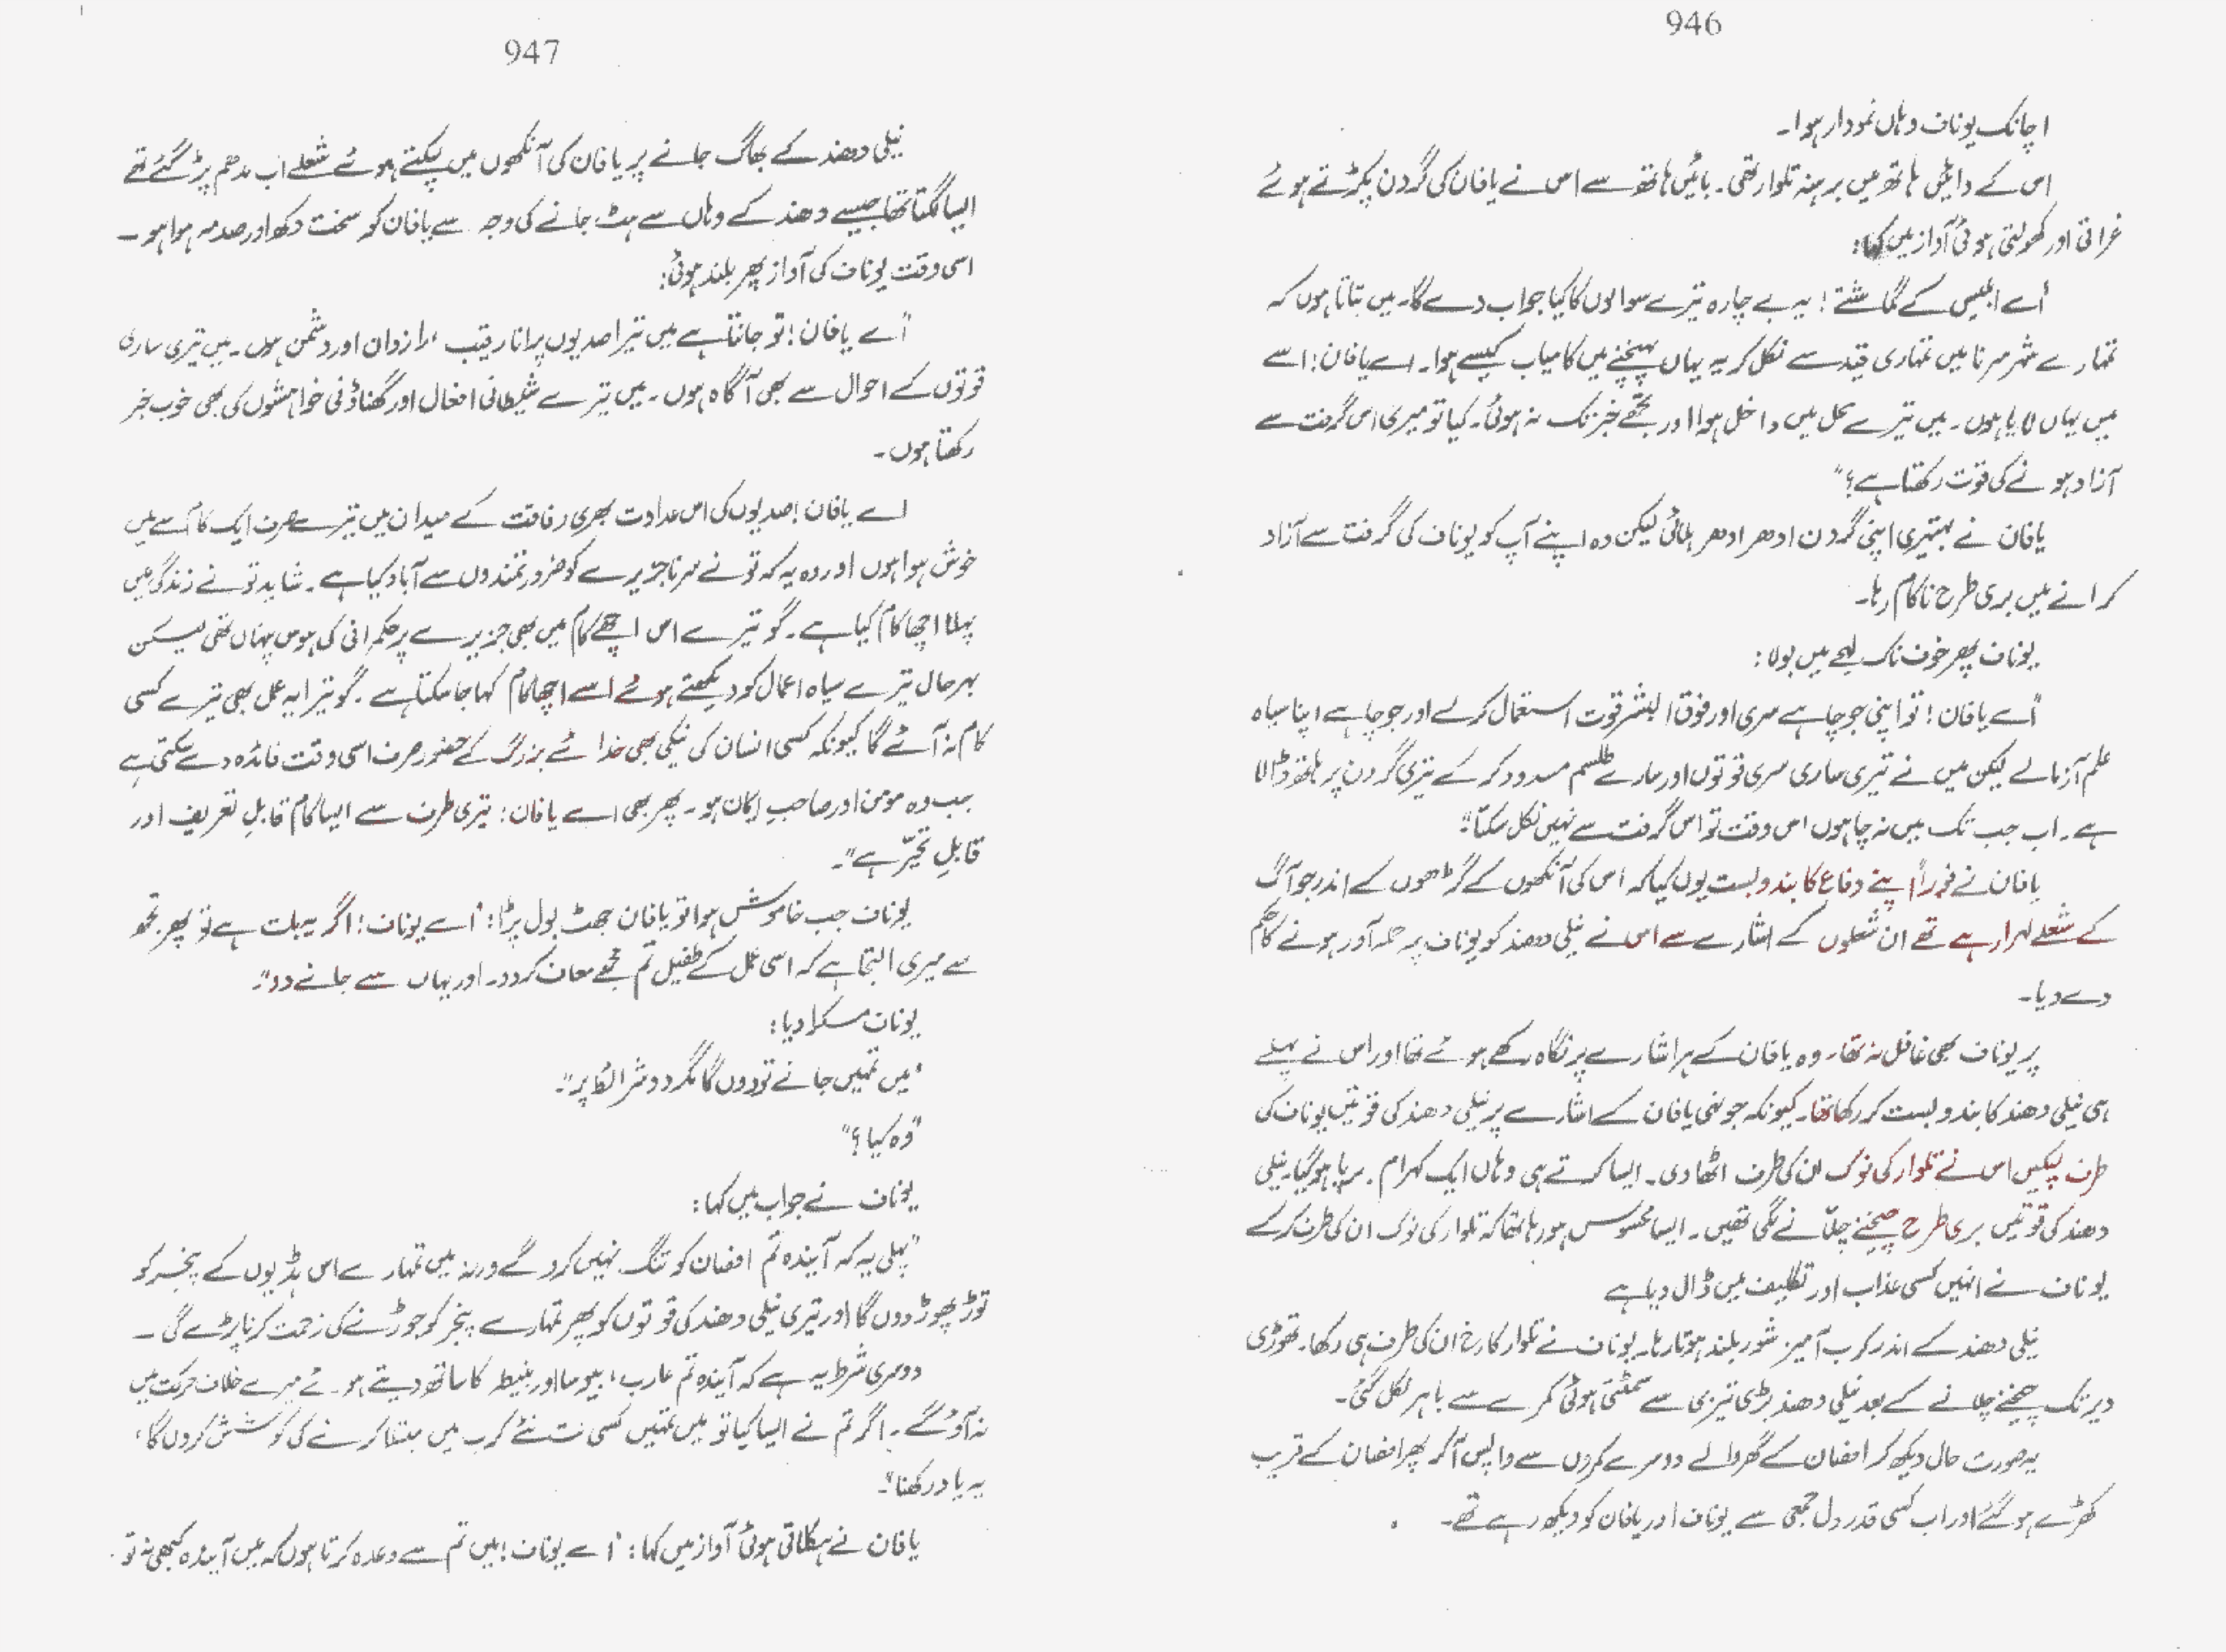 946
اچانک یوناف وہاں نمودار ہوا۔
اس کے دائیں ہاتھ میں برہنہ تلوار تھی۔ بائیں ہاتھ سے اس نے یافان کی گردن پکڑتے ہوئے
غراتی اور کھولتی ہوئی آواز میں کہا:
"اے ابلیس کے گماشتے! یہ بے چارہ تیرے سوالوں کا کیا جواب دے گا۔ میں بتاتا ہوں کہ
تمہارے شہر سرنا میں تمہاری قید سے نکل کر یہ یہاں پہنچنے میں کامیاب کیسے ہوا۔ اے یافان! اسے
میں یہاں لایا ہوں۔ میں تیرے محل میں داخل ہوا اور تجھے خبر تک نہ ہوئی۔ کیا تو میری اس گرفت سے
آزاد ہونے کی قوت رکھتا ہے؟"
یافان نے بہتیری اپنی گردن ادھر ادھر ہلائی لیکن وہ اپنے آپ کو یوناف کی گرفت سے آزاد
کرانے میں بری طرح ناکام رہا۔
یوناف پھر خوف ناک لہجے میں بولا:
"اے یافان! تو اپنی جو چاہے سری اور فوق البشر قوت استعمال کر لے اور جو چاہے اپنا سیاہ
علم آزما لے لیکن میں نے تیری ساری سری قوتوں اور سارے طلسم مسدود کر کے تیری گردن پر ہاتھ ڈالا
ہے۔ اب جب تک میں نہ چاہوں اس وقت تو اس گرفت سے نہیں نکل سکتا"۔
یافان نے فوراً اپنے دفاع کا بندوبست یوں کیا کہ اس کی آنکھوں کے گڑھوں کے اندر جو آگ
کے شعلے لہرا رہے تھے ان شعلوں کے اشارے سے اس نے نیلی دھند کو یوناف پر حملہ آور ہونے کا حکم
دے دیا۔
پر یوناف بھی غافل نہ تھا۔ وہ یافان کے ہر اشارے پر نگاہ رکھے ہوئے تھا اور اس نے پہلے
ہی نیلی دھند کا بندوبست کر رکھا تھا۔ کیونکہ جونہی یافان کے اشارے پر نیلی دھند کی قوتیں یوناف کی
طرف لپکیں اس نے تلوار کی نوک ان کی طرف اٹھا دی۔ ایسا کرتے ہی وہاں ایک کہرام برپا ہو گیا۔ نیلی
دھند کی قوتیں بری طرح چیخنے چلانے لگی تھیں۔ ایسا محسوس ہو رہا تھا کہ تلوار کی نوک ان کی طرف کر کے
یوناف نے انہیں کسی عذاب اور تکلیف میں ڈال دیا ہے
نیلی دھند کے اندر کرب آمیز شور بلند ہوتا رہا۔ یوناف نے تلوار کا رخ ان کی طرف ہی رکھا۔ تھوڑی
دیر تک چیخنے چلانے کے بعد نیلی دھند بڑی تیزی سے سمٹتی ہوئی کمرے سے باہر نکل گئی۔
یہ صورت حال دیکھ کر افضان کے گھر والے دوسرے کمروں سے واپس آ کر پھر افضان کے قریب
کھڑے ہو گئے اور اب کسی قدر دل جمعی سے یوناف اور یافان کو دیکھ رہے تھے۔
947
نیلی دھند کے بھاگ جانے پر یافان کی آنکھوں میں لپکتے ہوئے شعلے اب مدھم پڑ گئے تھے
ایسا لگتا تھا جیسے دھند کے وہاں سے ہٹ جانے کی وجہ سے یافان کو سخت دکھ اور صدمہ ہوا ہو۔
اسی وقت یوناف کی آواز پھر بلند ہوئی:
"اے یافان! تو جانتا ہے میں تیرا صدیوں پرانا رقیب، رازدان اور دشمن ہوں۔ میں تیری ساری
قوتوں کے احوال سے بھی آگاہ ہوں۔ میں تیرے شیطانی افعال اور گھناؤنی خواہشوں کی بھی خوب خبر
رکھتا ہوں۔
اے یافان! صدیوں کی اس عداوت بھری رفاقت کے میدان میں تیرے صرف ایک کام سے میں
خوش ہوا ہوں اور وہ یہ کہ تو نے سرنا جزیرے کو ضرورتمندوں سے آباد کیا ہے۔ شاید تو نے زندگی میں
پہلا اچھا کام کیا ہے۔ گو تیرے اس اچھے کام میں بھی جزیرے پر حکمرانی کی ہوس پنہاں تھی لیکن
بہرحال تیرے سیاہ اعمال کو دیکھتے ہوئے اسے اچھا کام کہا جا سکتا ہے۔ گو تیرا یہ عمل بھی تیرے کسی
کام نہ آئے گا کیونکہ کسی انسان کی نیکی بھی خدائے بزرگ کے حضور صرف اسی وقت فائدہ دے سکتی ہے
جب وہ مومن اور صاحبِ ایمان ہو۔ پھر بھی اے یافان! تیری طرف سے ایسا کام قابلِ تعریف اور
قابلِ تحیّر ہے"۔
یوناف جب خاموش ہوا تو یافان جھٹ بول پڑا: "اے یوناف! اگر یہ بات ہے تو پھر تجھ
سے میری التجا ہے کہ اسی عمل کے طفیل تم مجھے معاف کر دو۔ اور یہاں سے جانے دو"۔
یوناف مسکرا دیا:
"میں تمہیں جانے تو دوں گا مگر دو شرائط پر"۔
"وہ کیا؟"
یوناف نے جواب میں کہا:
"پہلی یہ کہ آیندہ تم افضان کو تنگ نہیں کرو گے ورنہ میں تمہارے اس ہڈیوں کے پنجر کو
توڑ پھوڑ دوں گا اور تیری نیلی دھند کی قوتوں کو پھر تمہارے پنجر کو جوڑنے کی زحمت کرنا پڑے گی۔
دوسری شرط یہ ہے کہ آیندہ تم عارب، بیوسا اور نبیطہ کا ساتھ دیتے ہوئے میرے خلاف حرکت میں
نہ آؤ گے۔ اگر تم نے ایسا کیا تو میں تمہیں کسی نت نئے کرب میں مبتلا کرنے کی کوشش کروں گا،
یہ یاد رکھنا"۔
یافان نے ہکلاتی ہوئی آواز میں کہا: "اے یوناف! میں تم سے وعدہ کرتا ہوں کہ میں آیندہ کبھی نہ تو